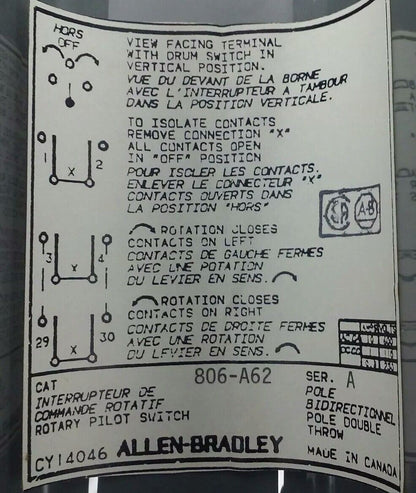 HORS
OFF
VIEW FACING TERMINAL
WITH DRUM SWITCH IN
VERTICAL POSITION.
VUE DU DEVANT DE LA BORNE
AVEC L'INTERRUPTEUR A TAMBOUR
DANS LA POSITION VERTICALE.
TO ISOLATE CONTACTS
REMOVE CONNECTION "X"
ALL CONTACTS OPEN
IN "OFF" POSITION
POUR ISOLER LES CONTACTS,
ENLEVER LE CONNECTEUR "X"
CONTACTS OUVERTS DANS
LA POSITION "HORS"
1 2
X
CSA A-B
ROTATION CLOSES
CONTACTS ON LEFT
CONTACTS DE GAUCHE FERMES
AVEC UNE ROTATION
DU LEVIER EN SENS.
3 4
X
ROTATION CLOSES
CONTACTS ON RIGHT
CONTACTS DE DROITE FERMES
AVEC UNE ROTATION
DU LEVIER EN SENS.
29 30
X
CAT 806-A62 SER. A
INTERRUPTEUR DE
COMMANDE ROTATIF
ROTARY PILOT SWITCH
POLE
BIDIRECTIONNEL
POLE DOUBLE
THROW
CY14046 ALLEN-BRADLEY MADE IN CANADA